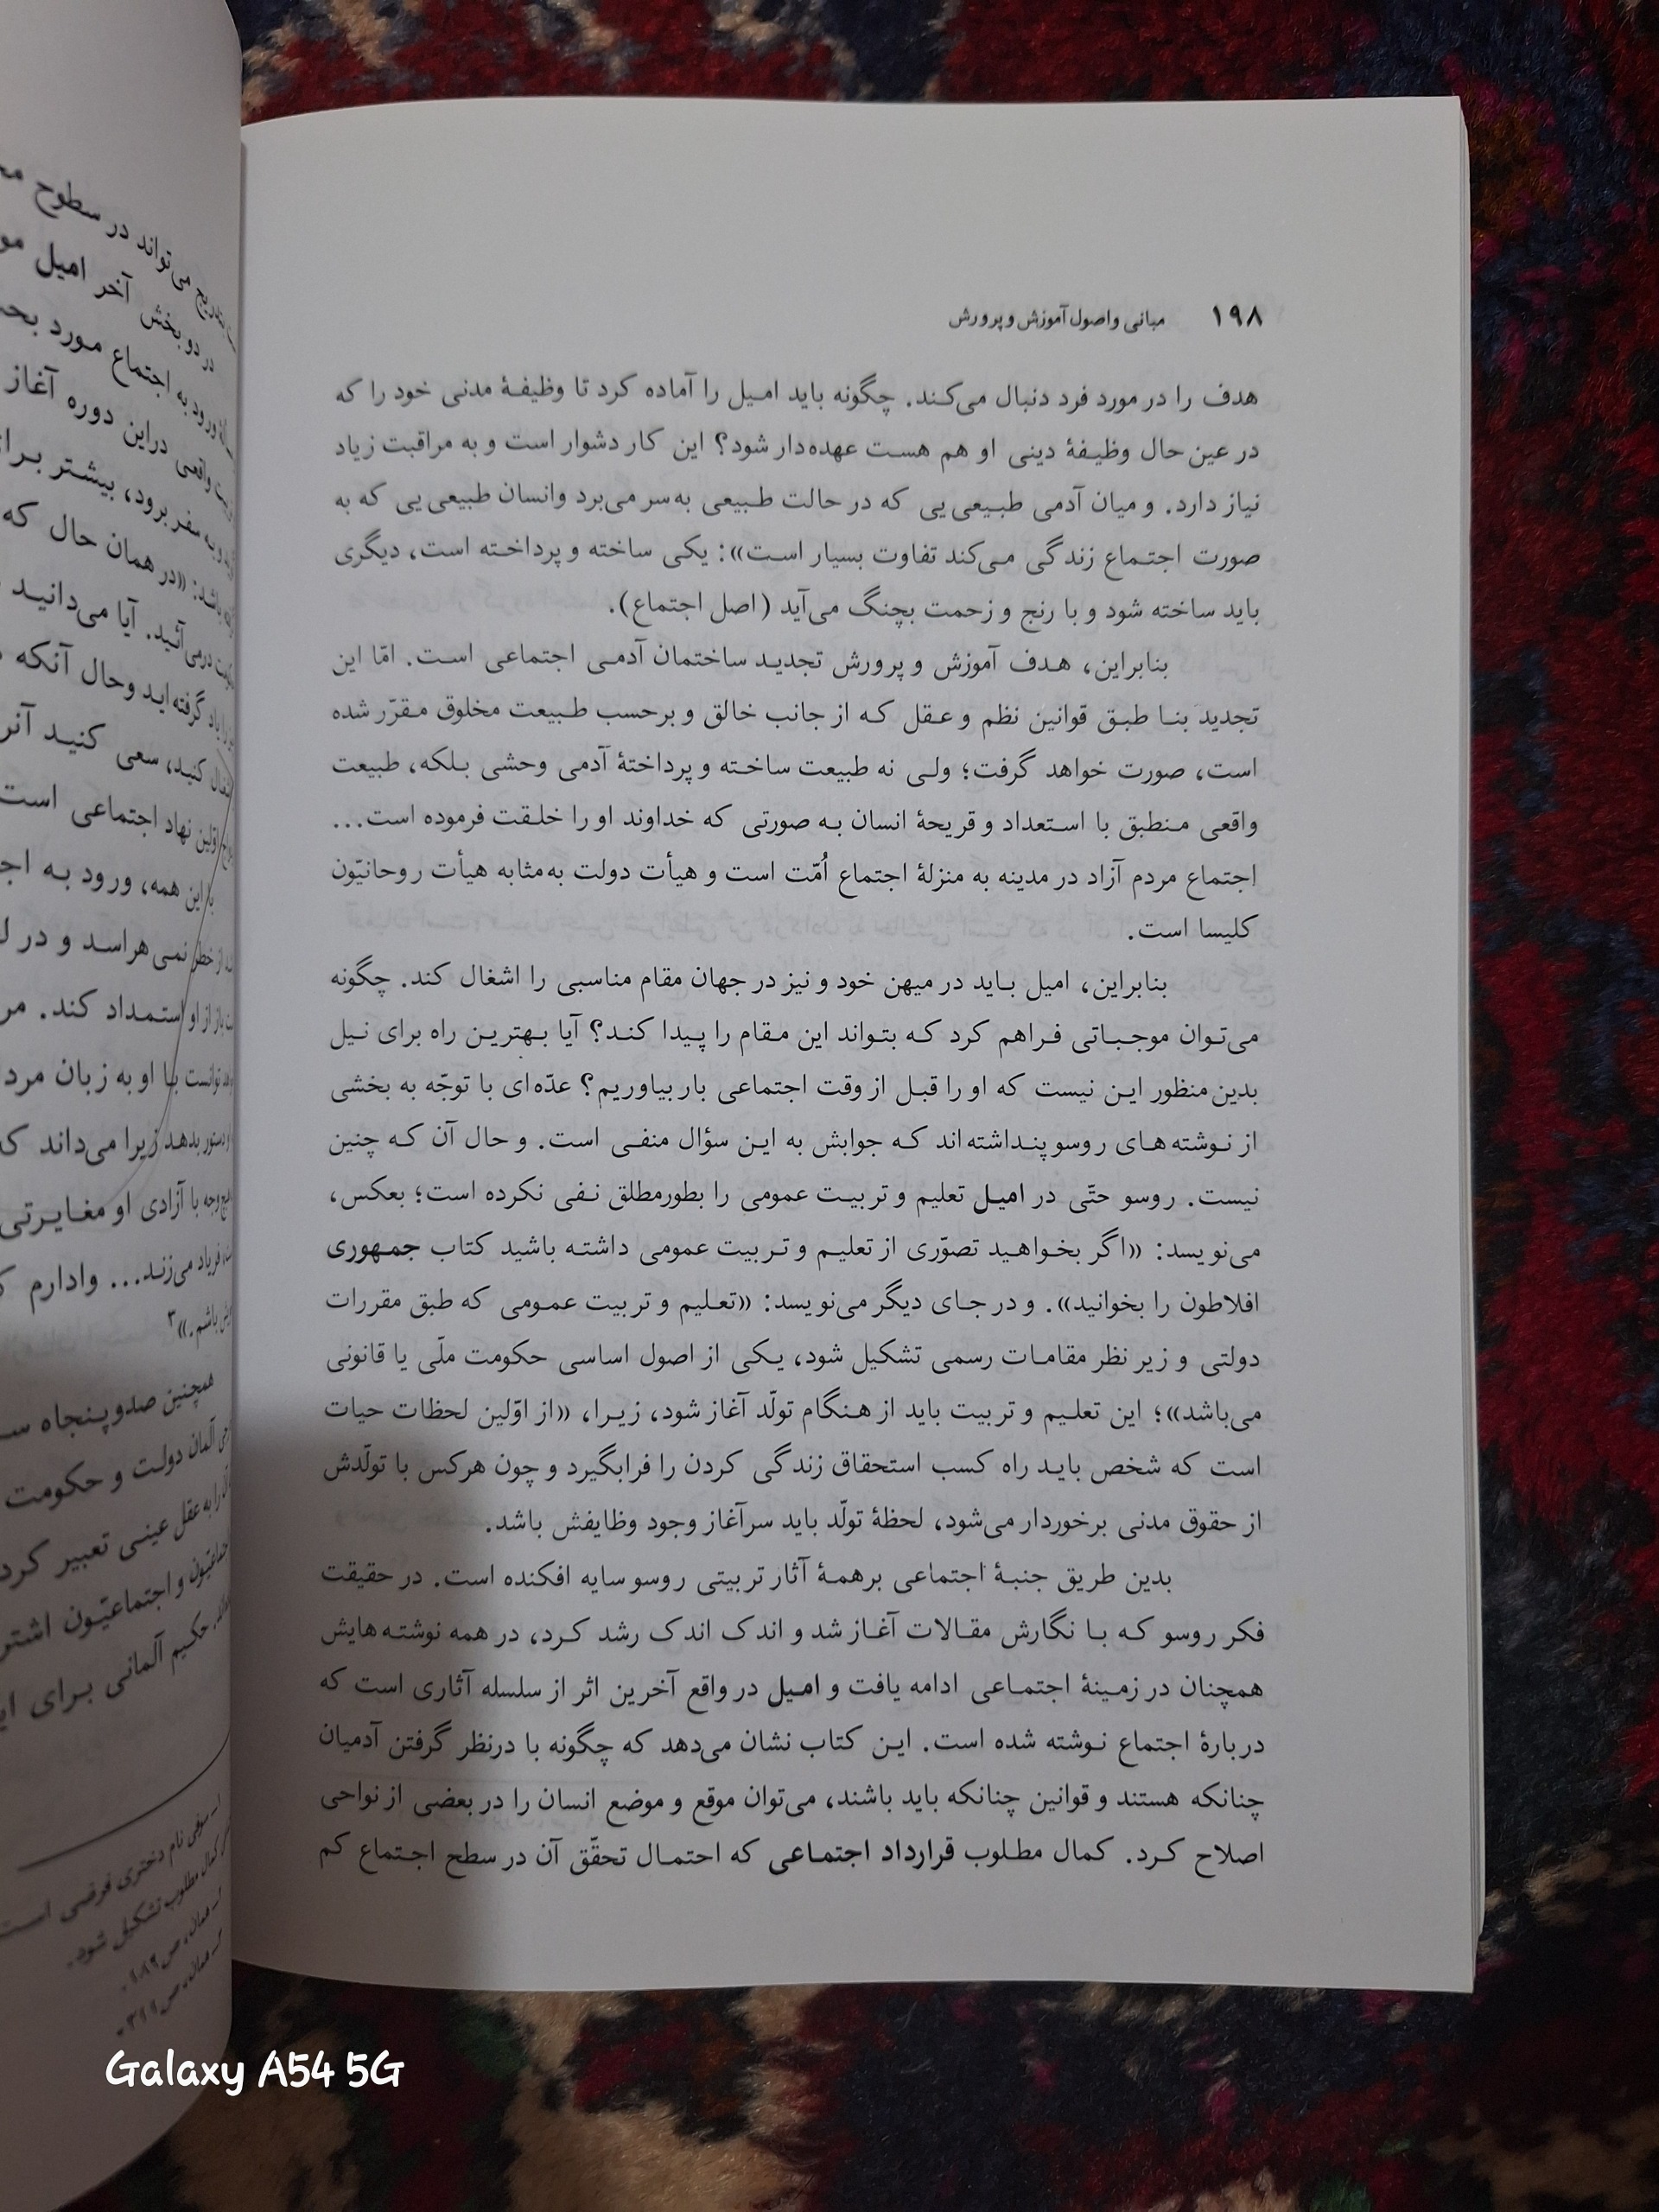 ۱۹۸ مبانی و اصول آموزش و پرورش
هدف را در مورد فرد دنبال می‌کند. چگونه باید امیل را آماده کرد تا وظیفهٔ مدنی خود را که
در عین حال وظیفهٔ دینی او هم هست عهده‌دار شود؟ این کار دشوار است و به مراقبت زیاد
نیاز دارد. و میان آدمی طبیعی‌یی که در حالت طبیعی به‌سر می‌برد وانسان طبیعی‌یی که به
صورت اجتماع زندگی می‌کند تفاوت بسیار است»: یکی ساخته و پرداخته است، دیگری
باید ساخته شود و با رنج و زحمت بچنگ می‌آید (اصل اجتماع).
بنابراین، هدف آموزش و پرورش تجدید ساختمان آدمی اجتماعی است. امّا این
تجدید بنا طبق قوانین نظم و عقل که از جانب خالق و برحسب طبیعت مخلوق مقرّر شده
است، صورت خواهد گرفت؛ ولی نه طبیعت ساخته و پرداختهٔ آدمی وحشی بلکه، طبیعت
واقعی منطبق با استعداد و قریحهٔ انسان به صورتی که خداوند او را خلقت فرموده است...
اجتماع مردم آزاد در مدینه به منزلهٔ اجتماع اُمّت است و هیأت دولت به‌مثابه هیأت روحانیّون
کلیسا است.
بنابراین، امیل باید در میهن خود و نیز در جهان مقام مناسبی را اشغال کند. چگونه
می‌توان موجباتی فراهم کرد که بتواند این مقام را پیدا کند؟ آیا بهترین راه برای نیل
بدین منظور این نیست که او را قبل از وقت اجتماعی بار بیاوریم؟ عدّه‌ای با توجّه به بخشی
از نوشته‌های روسو پنداشته‌اند که جوابش به این سؤال منفی است. و حال آن که چنین
نیست. روسو حتّی در امیل تعلیم و تربیت عمومی را بطورمطلق نفی نکرده است؛ بعکس،
می‌نویسد: «اگر بخواهید تصوّری از تعلیم و تربیت عمومی داشته باشید کتاب جمهوری
افلاطون را بخوانید». و در جای دیگر می‌نویسد: «تعلیم و تربیت عمومی که طبق مقررات
دولتی و زیر نظر مقامات رسمی تشکیل شود، یکی از اصول اساسی حکومت ملّی یا قانونی
می‌باشد»؛ این تعلیم و تربیت باید از هنگام تولّد آغاز شود، زیرا، «از اوّلین لحظات حیات
است که شخص باید راه کسب استحقاق زندگی کردن را فرابگیرد و چون هرکس با تولّدش
از حقوق مدنی برخوردار می‌شود، لحظهٔ تولّد باید سرآغاز وجود وظایفش باشد.
بدین طریق جنبهٔ اجتماعی برهمهٔ آثار تربیتی روسو سایه افکنده است. در حقیقت
فکر روسو که با نگارش مقالات آغاز شد و اندک اندک رشد کرد، در همه نوشته‌هایش
همچنان در زمینهٔ اجتماعی ادامه یافت و امیل در واقع آخرین اثر از سلسله آثاری است که
دربارهٔ اجتماع نوشته شده است. این کتاب نشان می‌دهد که چگونه با درنظر گرفتن آدمیان
چنانکه هستند و قوانین چنانکه باید باشند، می‌توان موقع و موضع انسان را در بعضی از نواحی
اصلاح کرد. کمال مطلوب قرارداد اجتماعی که احتمال تحقّق آن در سطح اجتماع کم
بتدریج می‌تواند در سطوح
در دو بخش آخر امیل
ورود به اجتماع مورد
واقعی دراین دوره آغاز
به سفر برود، بیشتر
باشد: «در همان حال که
درمی‌آئید. آیا می‌دانید
یاد گرفته‌اید وحال آنکه
کنید، سعی کنید
اوّلین نهاد اجتماعی است
با این همه، ورود به
از خطر نمی‌هراسد و در
باز از او استمداد کند.
توانست با او به زبان
دستور بدهد زیرا می‌داند
وجه با آزادی او مغایرتی
فریاد می‌زند... وادارم
باشم.»۳
همچنین صدو پنجاه
آلمان دولت و حکومت
را به عقل عینی تعبیر
و اجتماعیّون
حکیم آلمانی برای
سوفی نام دختری فرضی است
کمال مطلوب تشکیل شود.
همان، ص
همان، ص
Galaxy A54 5G